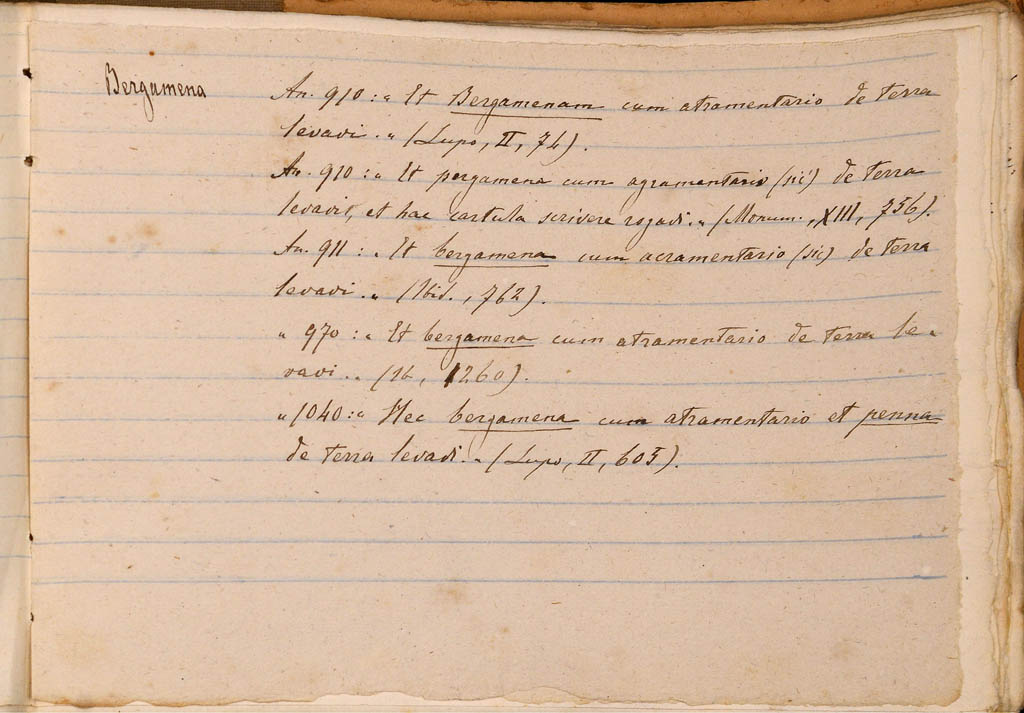 Bergamena
An. 910: „ Et Bergamenam cum atramentario de terra
levavi. „ (Lupo, II, 74).
An. 910: „ Et pergamena cum agramentario (sic) de terra
levavi, et hac cartula scrivere rogavi. „ (Monum., XIII, 756).
An. 911: „ Et bergamena cum acramentario (sic) de terra
levavi. „ (Ibid., 762).
„ 970: „ Et bergamena cum atramentario de terra le-
vavi. „ (Ib, 1260).
„ 1040: „ Hec bergamena cum atramentario et penna
de terra levavi. „ (Lupo, II, 605).